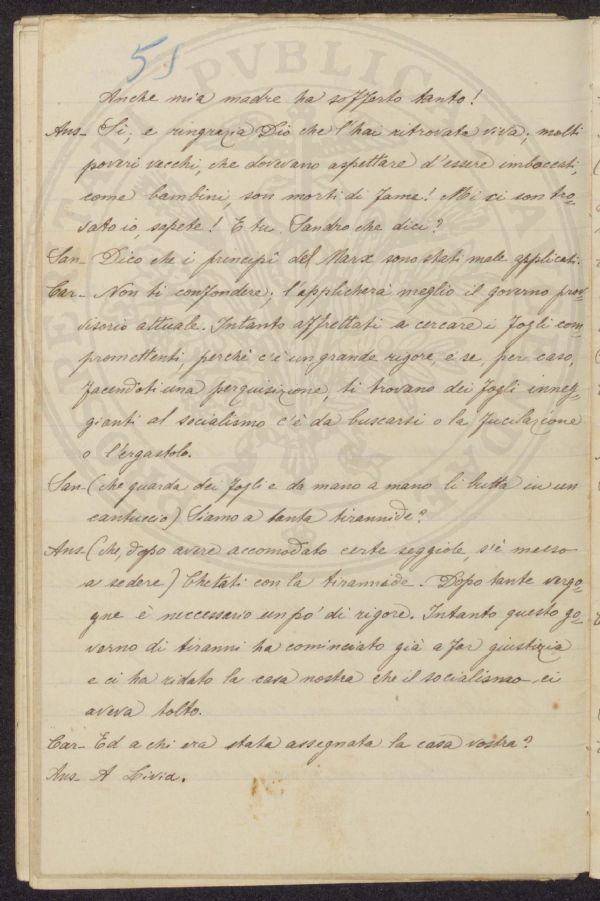 51
Anche mia madre ha sofferto tanto!
Ans- Sì; e ringrazia Dio che l'hai ritrovata viva; molti
poveri vecchi, che dovevano aspettare d'essere imboccati,
come bambini, son morti di fame! Mi ci son tro-
vato io, sapete! E tu, Sandro che dici?
San- Dico che i principî del Marx sono stati male applicati.
Car- Non ti confondere; l'applicherà meglio il governo prov-
visorio attuale. Intanto affrettati a cercare i fogli com
promettenti, perchè c'è un grande rigore, e se, per caso,
facendoti una perquisizione, ti trovano dei fogli inneg-
gianti al socialismo c'è da buscarsi o la fucilazione
o l'ergastolo.
San- (che guarda dei fogli e da mano a mano li butta in un
cantuccio) Siamo a tanta tirannide?
Ans- (che, dopo avere accomodato certe seggiole, s'è messo
a sedere) Chetati con la tirannide. Dopo tante vergo-
gne è neccessario un po' di rigore. Intanto questo go-
verno di tiranni ha cominciato già a far giustizia
e ci ha ridato la casa nostra che il socialismo ci
aveva tolto.
Car- Ed a chi era stata assegnata la casa vostra?
Ans- A Livia.